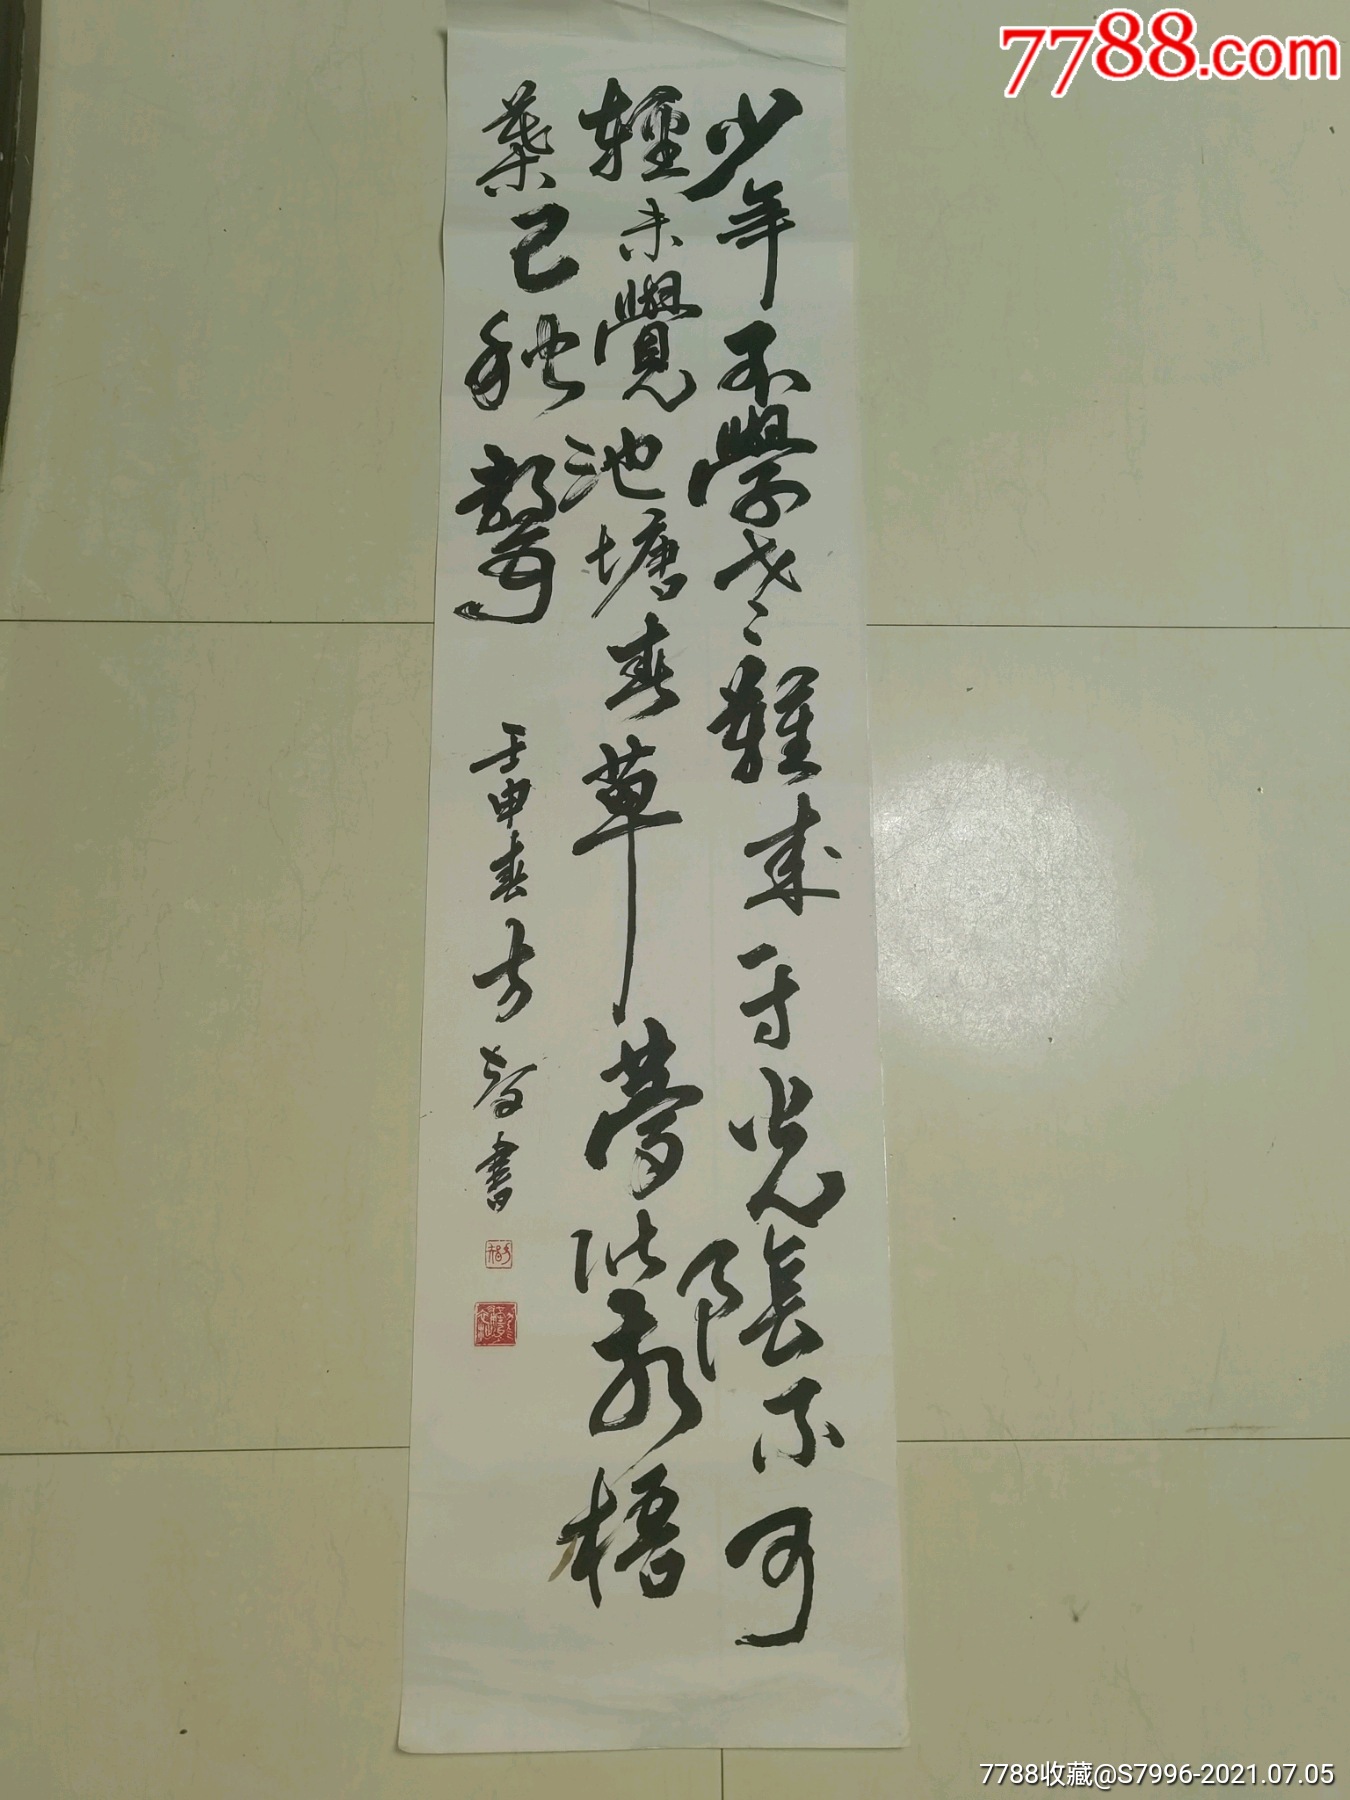 7788.com
少年不學老難成一寸光陰不可
輕未覺池塘春草夢階前梧
葉已秋聲
壬申春方書
7788收藏@S7996-2021.07.05